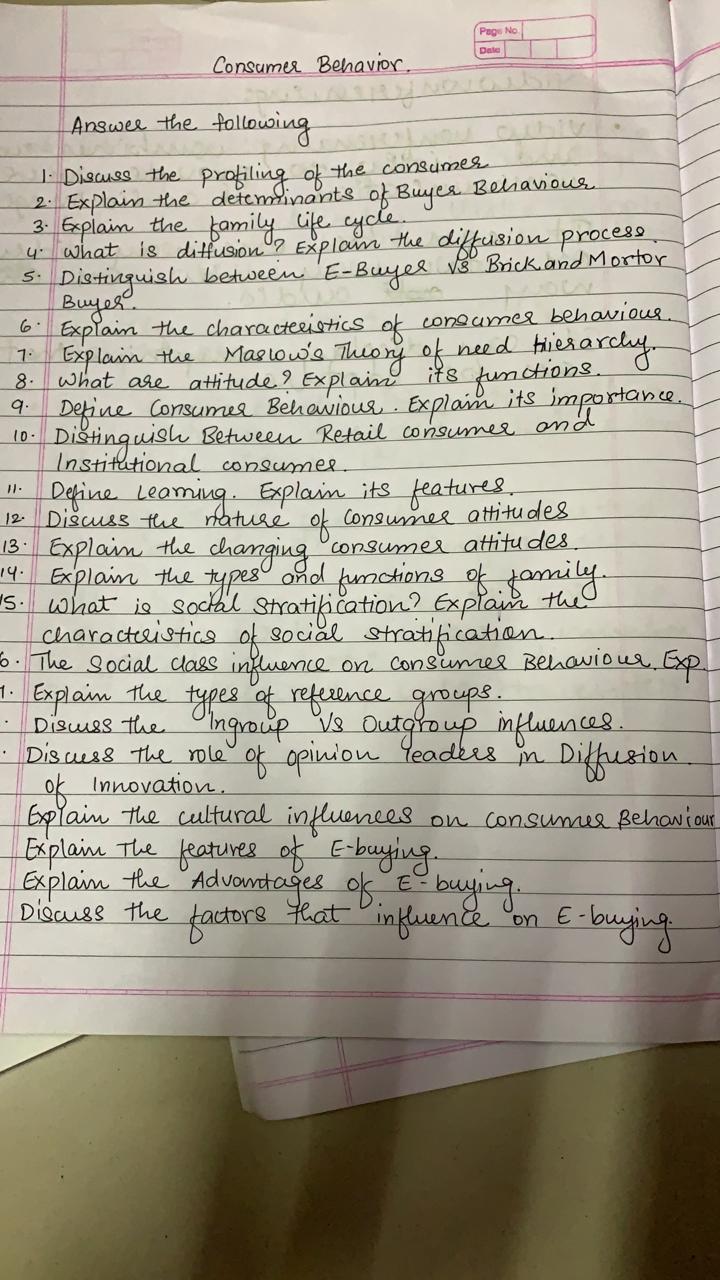 Page No.
Date
Consumer Behavior.
Answer the following
1. Discuss the profiling of the consumer
2. Explain the determinants of Buyer Behaviour
3. Explain the family life cycle.
4. What is diffusion? Explain the diffusion process.
5. Distinguish between E-Buyer VS Brick and Mortor
Buyer.
6. Explain the characteristics of consumer behaviour.
7. Explain the Maslow's Theory of need Hierarchy.
8. What are attitude? Explain its functions.
9. Define Consumer Behaviour. Explain its importance.
10. Distinguish Between Retail consumer and
Institutional consumer.
11. Define Learning. Explain its features.
12. Discuss the nature of Consumer attitudes
13. Explain the changing consumer attitudes.
14. Explain the types and functions of family.
15. What is social stratification? Explain the
characteristics of social stratification.
6. The Social class influence on consumer Behaviour. Exp.
7. Explain the types of reference groups.
. Discuss the Ingroup Vs Outgroup influences.
. Discuss the role of opinion leaders in Diffusion
of Innovation.
Explain the cultural influences on consumer Behaviour
Explain The features of E-buying.
Explain the Advantages of E-buying.
Discuss the factors that influence on E-buying.